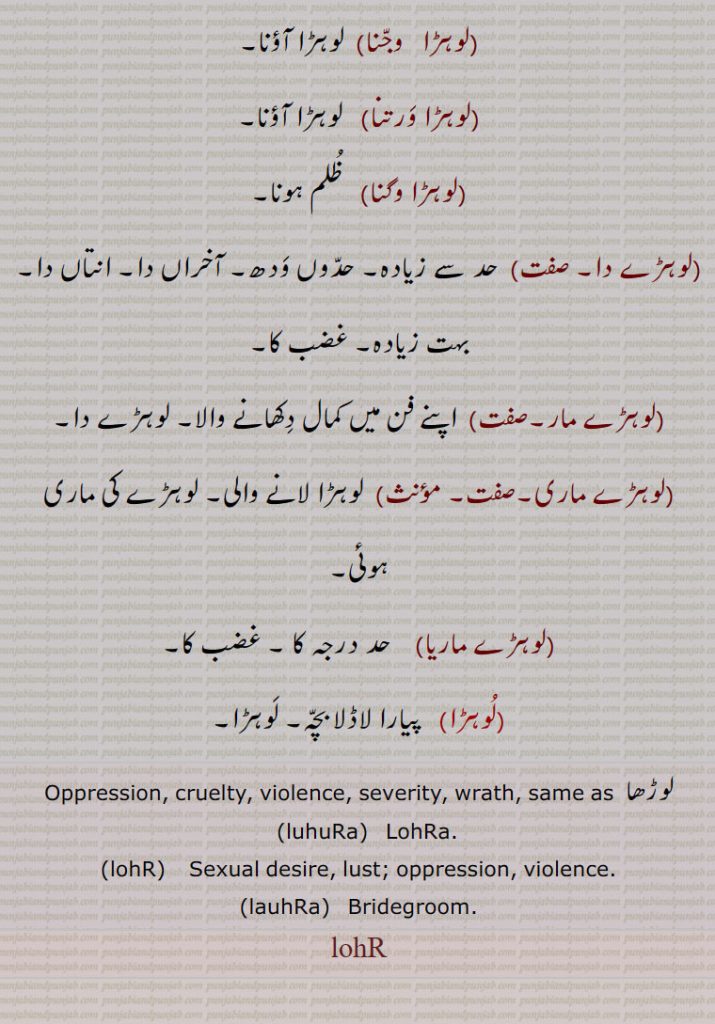 (لوہڑا وجّنا) لوہڑا آؤنا۔
(لوہڑا وَرتنا) لوہڑا آؤنا۔
(لوہڑا وگنا) ظُلم ہونا۔
(لوہڑے دا۔ صفت) حد سے زیادہ۔ حدّوں وَدھ۔ آخراں دا۔ انتاں دا۔
بہت زیادہ۔ غضب کا۔
(لوہڑے مار۔صفت) اپنے فن میں کمال دِکھانے والا۔ لوہڑے دا۔
(لوہڑے ماری۔صفت۔ مؤنث) لوہڑا لانے والی۔ لوہڑے کی ماری
ہوئی۔
(لوہڑے ماریا) حد درجہ کا ۔ غضب کا۔
(لُوہڑا) پیارا لاڈلا بچّہ۔ لَوہڑا۔
Oppression, cruelty, violence, severity, wrath, same as لوڑھا
(luhuRa) LohRa.
(lohR) Sexual desire, lust; oppression, violence.
(lauhRa) Bridegroom.
lohR